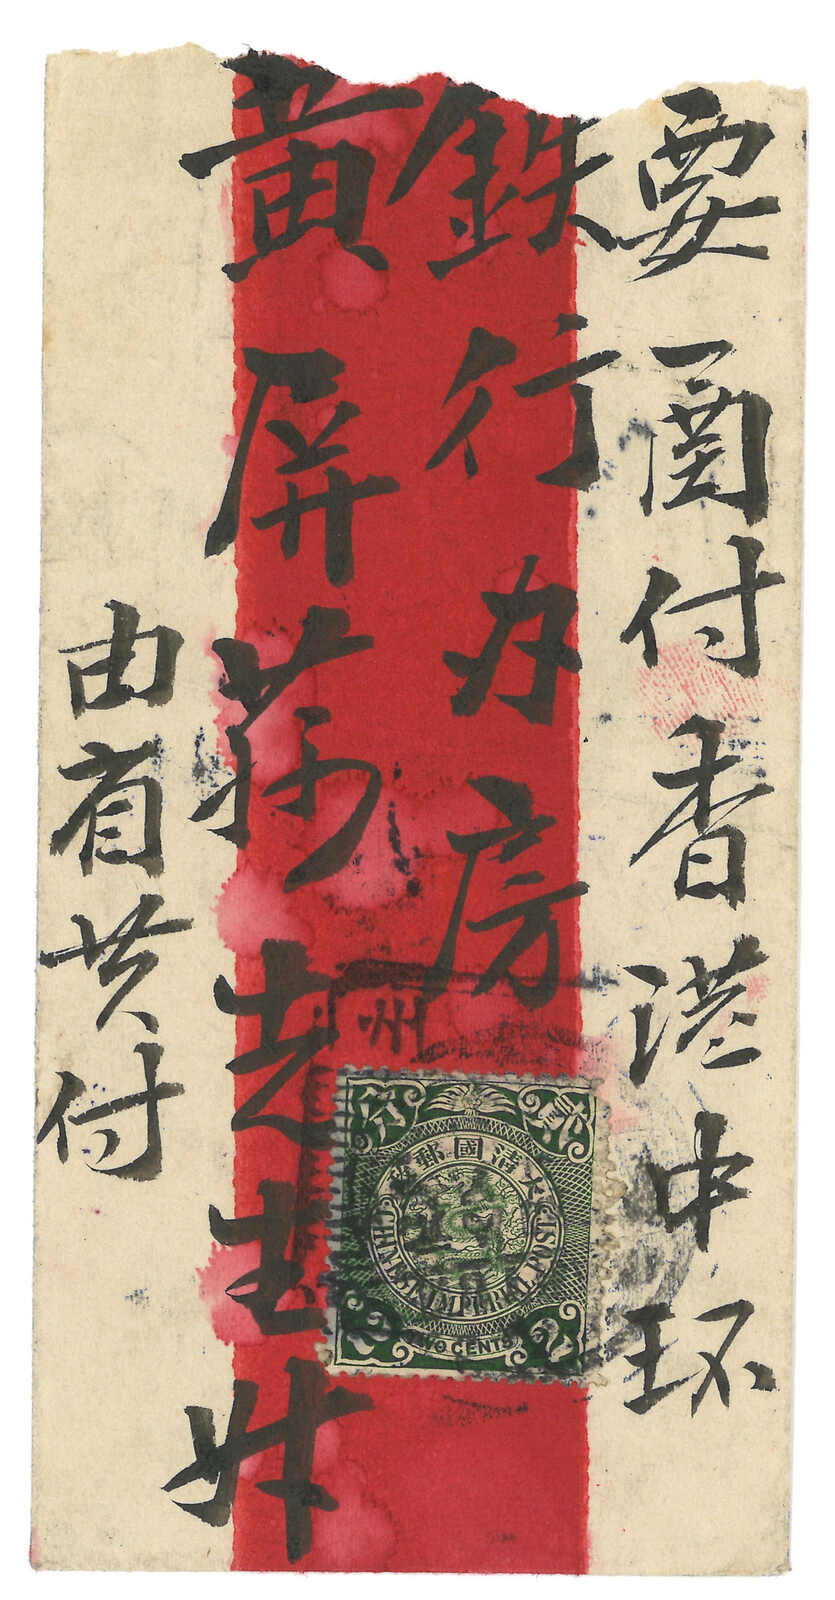 要函付香港中环
鉄行办房
黄屏荪先生升
由省共付
州
大清國郵政
CHINESE IMPERIAL POST
TWO CENTS
2
分
貳